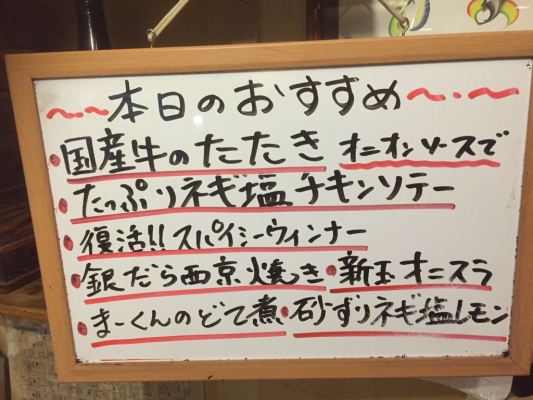 ～～本日のおすすめ～・～
・国産牛のたたき オニオンソースで
・たっぷりネギ塩チキンソテー
・復活!! スパイシーウィンナー
・銀だら西京焼き・新玉オニスラ
・まーくんのどて煮・砂ずりネギ塩レモン